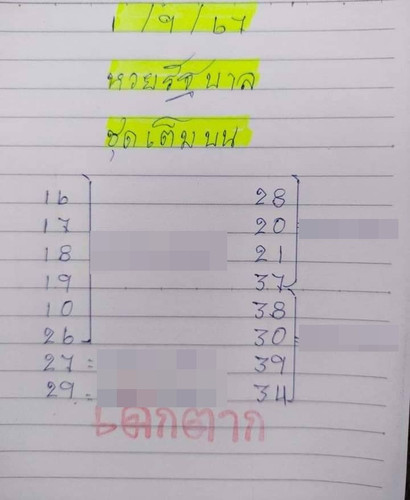 1/9/67
หวยรัฐบาล
ชุดเต็มบน
16
17
18
19
10
26
27 =
29 =
28
20
21
37
38
30
39
34
เดกตาก